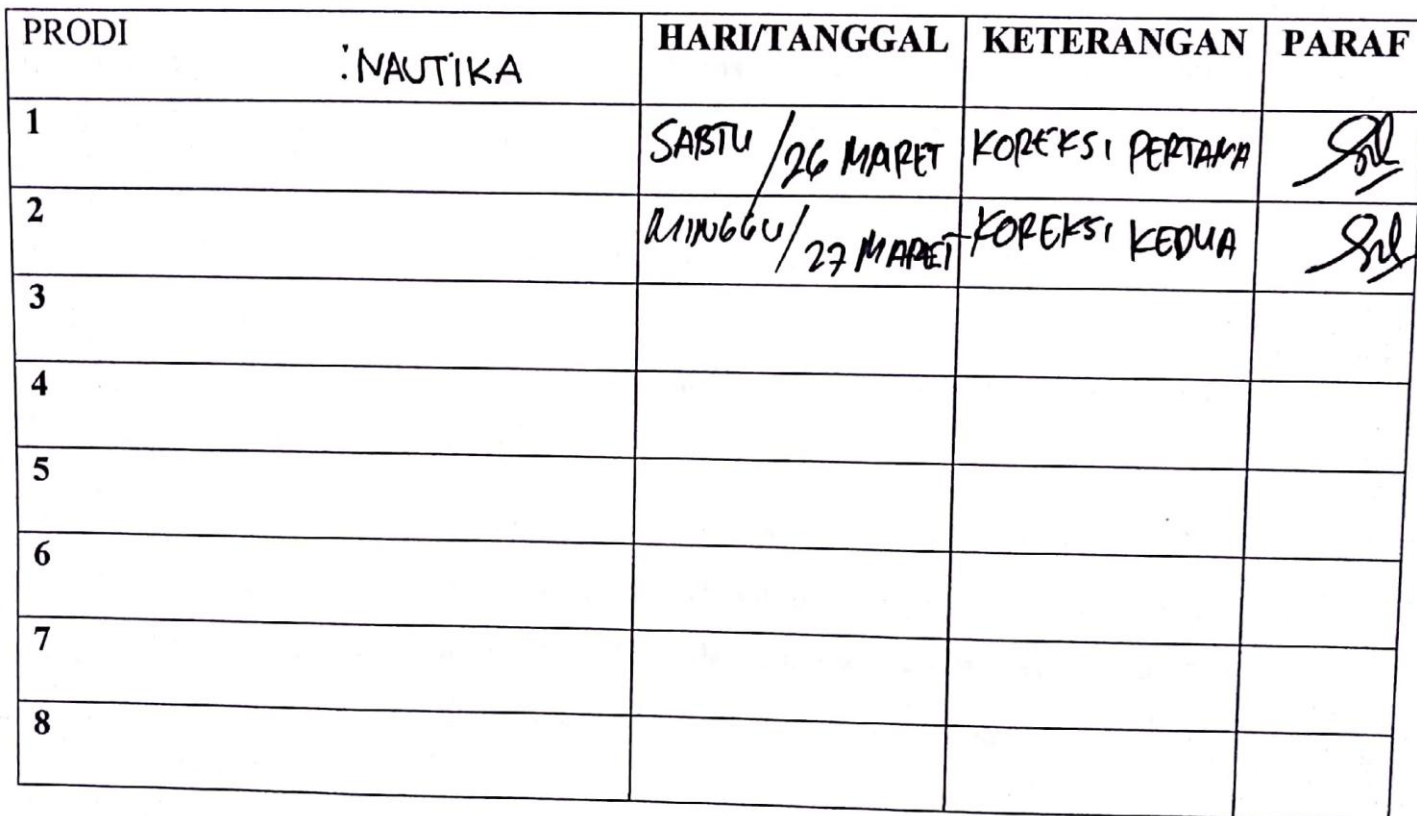 PRODI : NAUTIKA HARI/TANGGAL KETERANGAN PARAF
1 SABTU / 26 MARET KOREKSI PERTAMA
2 MINGGU / 27 MARET KOREKSI KEDUA
3
4
5
6
7
8